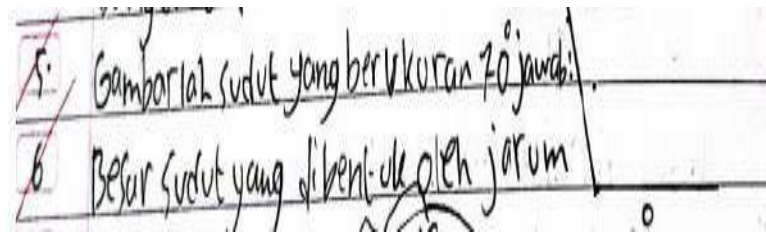 5. Gambarlah sudut yang berukuran 70° jawab:
6 Besar sudut yang dibentuk oleh jarum
0